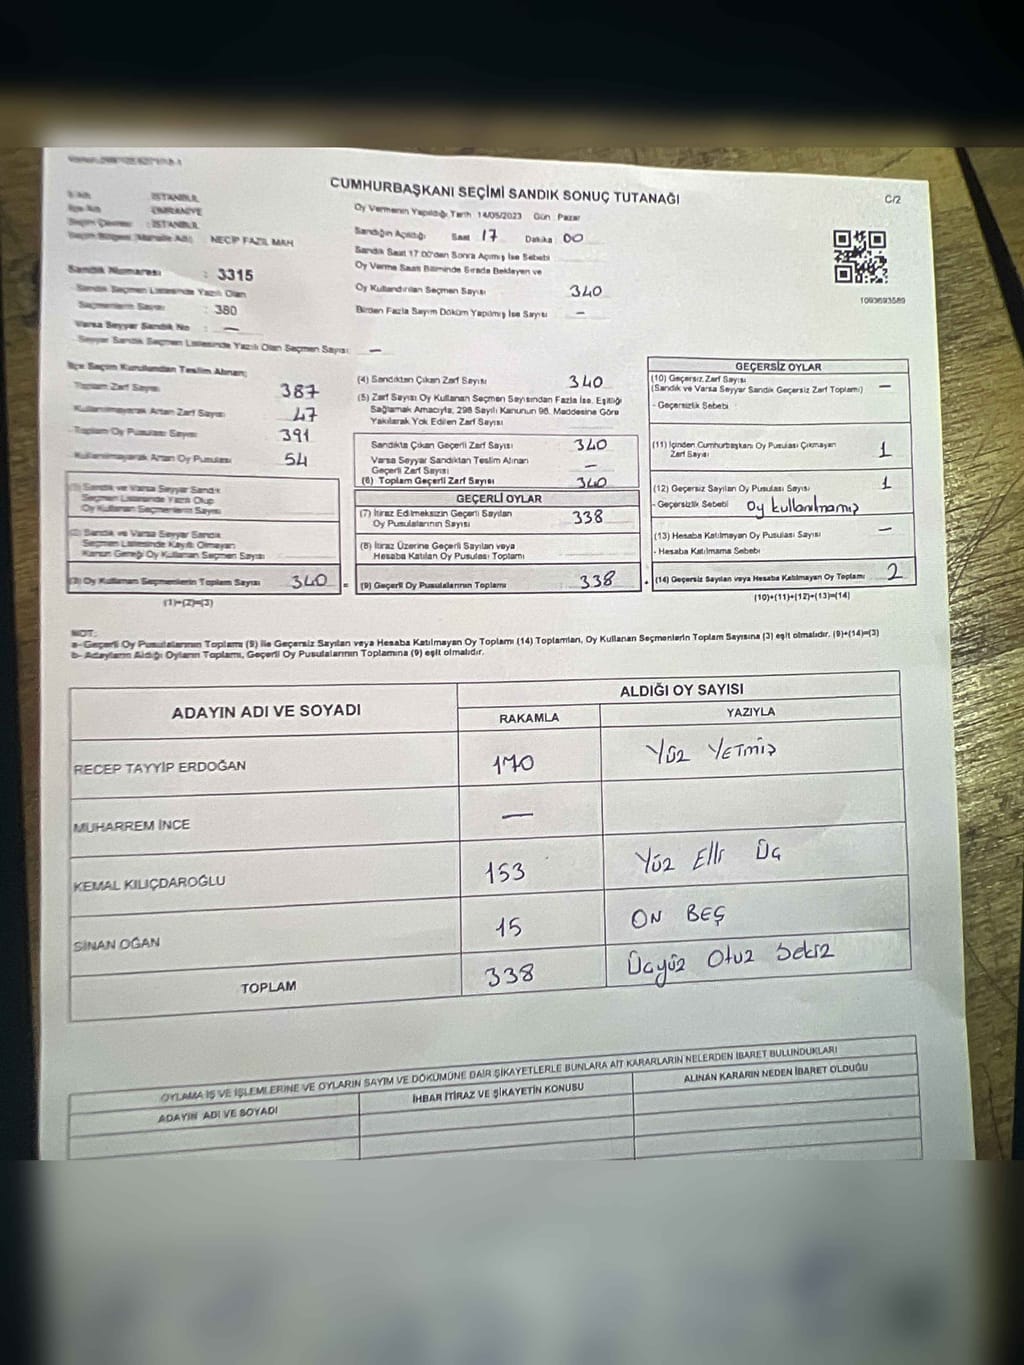 CUMHURBAŞKANI SEÇİMİ SANDIK SONUÇ TUTANAĞI
C/2
İSTANBUL
ÜMRANİYE
: İSTANBUL
NECİP FAZIL MAH
Sandık Numarası : 3315
Sandık Seçmen Listesinde Yazılı Olan
Seçmenlerin Sayısı : 380
Varsa Seyyar Sandık No : —
Seyyar Sandık Seçmen Listesinde Yazılı Olan Seçmen Sayısı: —
Oy Vermenin Yapıldığı Tarih 14/05/2023 Gün : Pazar
Sandığın Açıldığı Saat 17 Dakika 00
Sandık Saat 17:00'den Sonra Açımış İse Sebebi
Oy Verme Saati Bitiminde Sırada Bekleyen ve
Oy Kullandırılan Seçmen Sayısı 340
Birden Fazla Sayım Döküm Yapılmış İse Sayısı —
1093693589
İlçe Seçim Kurulundan Teslim Alınan;
Toplam Zarf Sayısı 387
Kullanılmayarak Artan Zarf Sayısı 47
Toplam Oy Pusulası Sayısı 391
Kullanılmayarak Artan Oy Pusulası 54
(1) Sandık ve Varsa Seyyar Sandık
Seçmen Listesinde Yazılı Olup
Oy Kullanan Seçmenlerin Sayısı
(2) Sandık ve Varsa Seyyar Sandık
Seçmen Listesinde Kayıtlı Olmayan
Kanun Gereği Oy Kullanan Seçmen Sayısı
(3) Oy Kullanan Seçmenlerin Toplam Sayısı 340 =
(1)+(2)=(3)
(4) Sandıktan Çıkan Zarf Sayısı 340
(5) Zarf Sayısı Oy Kullanan Seçmen Sayısından Fazla İse, Eşitliği
Sağlamak Amacıyla, 298 Sayılı Kanunun 98. Maddesine Göre
Yakılarak Yok Edilen Zarf Sayısı
Sandıkta Çıkan Geçerli Zarf Sayısı 340
Varsa Seyyar Sandıktan Teslim Alınan
Geçerli Zarf Sayısı —
(6) Toplam Geçerli Zarf Sayısı 340
GEÇERLİ OYLAR
(7) İtiraz Edilmeksizin Geçerli Sayılan
Oy Pusulalarının Sayısı 338
(8) İtiraz Üzerine Geçerli Sayılan veya
Hesaba Katılan Oy Pusulası Toplamı
(9) Geçerli Oy Pusulalarının Toplamı 338 +
GEÇERSİZ OYLAR
(10) Geçersiz Zarf Sayısı
(Sandık ve Varsa Seyyar Sandık Geçersiz Zarf Toplamı) —
- Geçersizlik Sebebi
(11) İçinden Cumhurbaşkanı Oy Pusulası Çıkmayan
Zarf Sayısı 1
(12) Geçersiz Sayılan Oy Pusulası Sayısı 1
- Geçersizlik Sebebi Oy kullanılmamış
(13) Hesaba Katılmayan Oy Pusulası Sayısı —
- Hesaba Katılmama Sebebi
(14) Geçersiz Sayılan veya Hesaba Katılmayan Oy Toplamı 2
(10)+(11)+(12)+(13)=(14)
NOT:
a- Geçerli Oy Pusulalarının Toplamı (9) ile Geçersiz Sayılan veya Hesaba Katılmayan Oy Toplamı (14) Toplamları, Oy Kullanan Seçmenlerin Toplam Sayısına (3) eşit olmalıdır. (9)+(14)=(3)
b- Adayların Aldığı Oyların Toplamı, Geçerli Oy Pusulalarının Toplamına (9) eşit olmalıdır.
ADAYIN ADI VE SOYADI
ALDIĞI OY SAYISI
RAKAMLA YAZIYLA
RECEP TAYYİP ERDOĞAN 170 Yüz YETMİŞ
MUHARREM İNCE —
KEMAL KILIÇDAROĞLU 153 Yüz Elli Üç
SİNAN OĞAN 15 ON BEŞ
TOPLAM 338 Üçyüz Otuz Sekiz
OYLAMA İŞ VE İŞLEMLERİNE VE OYLARIN SAYIM VE DÖKÜMÜNE DAİR ŞİKAYETLERLE BUNLARA AİT KARARLARIN NELERDEN İBARET BULUNDUKLARI
ADAYIN ADI VE SOYADI İHBAR İTİRAZ VE ŞİKAYETİN KONUSU ALINAN KARARIN NEDEN İBARET OLDUĞU